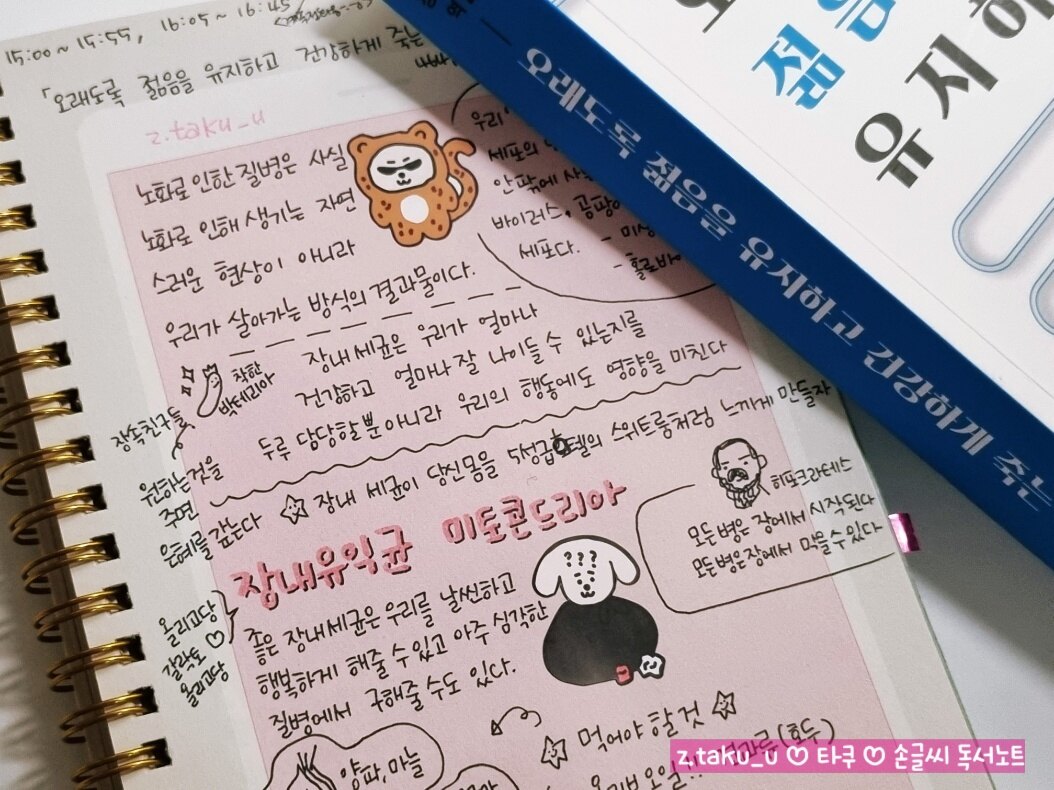 15:00 ~ 15:55, 16:05 ~ 16:45
「오래도록 젊음을 유지하고 건강하게 죽는
z.taku_u
노화로 인한 질병은 사실
노화로 인해 생기는 자연
스러운 현상이 아니라
우리가 살아가는 방식의 결과물이다.
우리
세포의
안팎에
바이러스, 곰팡이
세포다.
- 미생
- 홀로바이
착한
박테리아
장내 세균은 우리가 얼마나
건강하고 얼마나 잘 나이들 수 있는지를
두루 담당할 뿐 아니라 우리의 행동에도 영향을 미친다
장속친구들
원하는 것을
주면
은혜를 갚는다
장내 세균이 당신몸을 5성급호텔의 스위트룸처럼 느끼게 만들자
장내유익균 미토콘드리아
히포크라테스
모든병은 장에서 시작된다
모든병은장에서 막을 수 있다
???
올리고당
갈락토
올리고당
좋은 장내세균은 우리를 날씬하고
행복하게 해줄 수 있고 아주 심각한
질병에서 구해줄 수도 있다.
먹어야 할 것
양파, 마늘
(호두)
젊음
유지하
오래도록 젊음을 유지하고 건강하게 죽는
z.taku_u ♡ 타쿠 ♡ 손글씨 독서노트